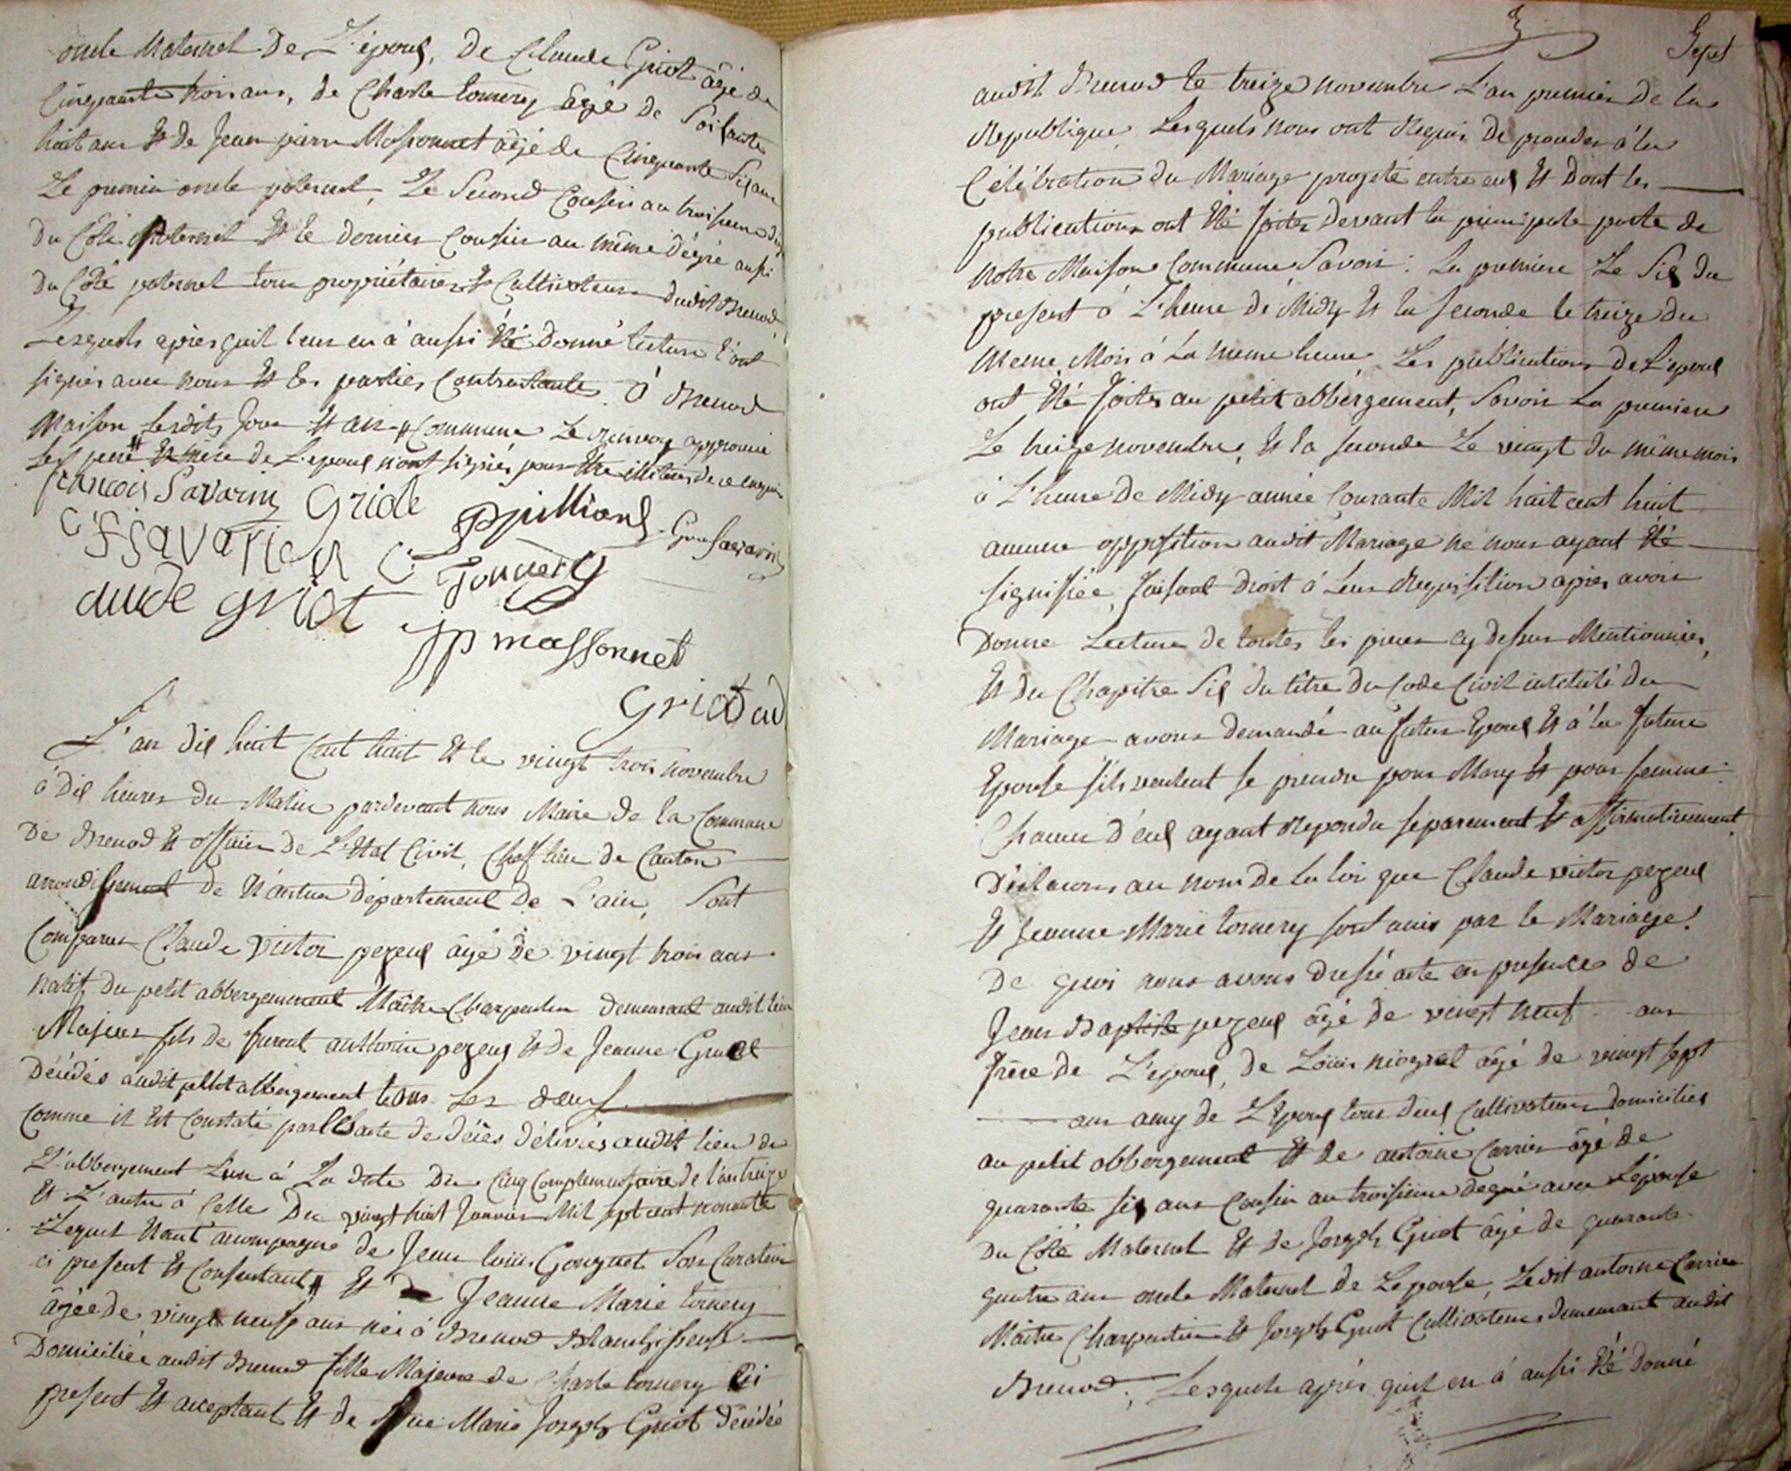 oncle Maternel De L'époux, De Claude Griot âgé de
Cinquante trois ans, de Charle tonnery âgé de Soisante
huit ans Et de Jean pierre Massonnet âgé de Cinquante Six ans
Le premier oncle paternel, Le Second Cousin au troisieme
du Côté Maternel Et le dernier Cousin au même dégré aussi
du Côté paternel tous propriétaires & Cultivateurs dudit Brenod
Lesquels après quil leur en à aussi été Donné lecture l'ont
signés avec nous Et les parties Contractantes à Brenod
Maison Lesdits Jour Et an Commune Le renvoy approuvé
Les pere Et mere de L'epoux n'ont signés pour être illitérés de ce enquis
françois Savarin Griot ppjulliand Gne Savarin
C F Savarin C Tonnery
aude griot jp massonnet
griot ad
L'an dix huit Cent huit Et le vingt trois novembre
à Dix heures du Matin pardevant nous Maire de la Commune
De Brenod Et officier de L'Etat Civil, Cheff lieu de Canton
arrondissement de Nantua département De L'ain, Sont
Comparus Claude Victor pezeux âgé de vingt trois ans
natif du petit abbergement Maitre Charpentier demeurant audit lieu
Majeur fils de furent anthoine pezeux Et de Jeanne
Décédés audit petit abbergement tous Les deux
Comme il Est Constaté par l'acte de décès délivrés audit lieu de
L'abbergement L'un à La date Du Cinq Complementaire de l'an treize
Et L'autre à Celle Du vingt huit Janvier Mil sept cent nonante
Lequel étant accompagné de Jean louis Gouguet Son Curateur
ci present Et Consentant Et De Jeanne Marie tonnery
âgée de vingt neuf ans née à Brenod Blanchisseuse
Domiciliée audit Brenod fille Majeure de Charle tonnery Ci
present Et acceptant Et de Marie Joseph Griot décédée
Sept
audit Brenod le treize novembre L'an premier de la
Republique. Lesquels nous ont Requis de proceder à la
Célébration du Mariage projeté entre eux Et Dont les
publications ont été faites Devant la principale porte de
notre Maison Commune Savoir: La premiere Le Six du
present à L'heure de Midy Et la seconde le treize du
Meme Mois à La meme heure, Les publications de L'epoux
ont été faites au petit abbergement, Savoir La premiere
Le treize novembre, Et la seconde Le vingt du même mois
à L'heure De Midy année Courante Mil huit cent huit
aucune opposition audit Mariage ne nous ayant été
signifiée, faisant Droit à Leur Requisition après avoir
Donné Lecture de toutes les pieces cy dessus Mentionnées,
Et du Chapitre Six du titre du Code Civil intitulé du
Mariage avons demandé au futur Epoux Et à la future
Epouse s'ils veulent se prendre pour Mary Et pour femme:
Chacun d'eux ayant Repondu séparement Et affirmativement
Déclarons au nom De la loi que Claude Victor pezeux
Et Jeanne Marie tonnery sont unis par le Mariage!
De quoi nous avons Dressé acte en presence de
Jean Baptiste pezeux âgé De vingt neuf ans
frere de L'epoux, de Louis niogret âgé de vingt sept
ans amy de L'Epoux tous deux Cultivateurs Domiciliés
au petit abbergement Et de antoine Carrier âgé de
quarante six ans Cousin au troisieme degré avec L'épouse
Du Côté Maternel Et de Joseph Griot âgé de quarante
quatre ans oncle Maternel de Lepouse, Ledit antoine Carrier
Maître Charpentier Et Joseph Griot Cultivateur demeurant audit
Brenod, Lesquels après quil en à aussi été Donné